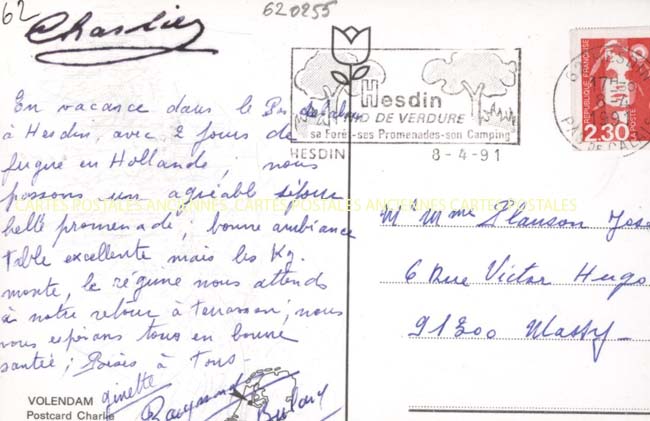 62
620255
Charlie
Hesdin
NID DE VERDURE
sa Forêt-ses Promenades-son Camping
HESDIN 8-4-91
17H
8-4
1991
PAS DE CALAIS
REPUBLIQUE FRANÇAISE
2,30
LA POSTE
En vacance dans le Pas de Calais
à Hesdin, avec 2 jours de
fugue en Hollande, nous
passons un agréable séjour
belle promenade, bonne ambiance
Table excellente mais les Kg.
monte, le régime nous attends
à notre retour à Terrasson, nous
vous espérons tous en bonne
santée, Baises à Tous-
Ginette
Raymond
CARTES POSTALES ANCIENNES CARTES POSTALES ANCIENNES CARTES POSTALES ANCIENNES
Mr Mme
6 Rue Victor Hugo
91300 Massy
VOLENDAM
Postcard Charlie